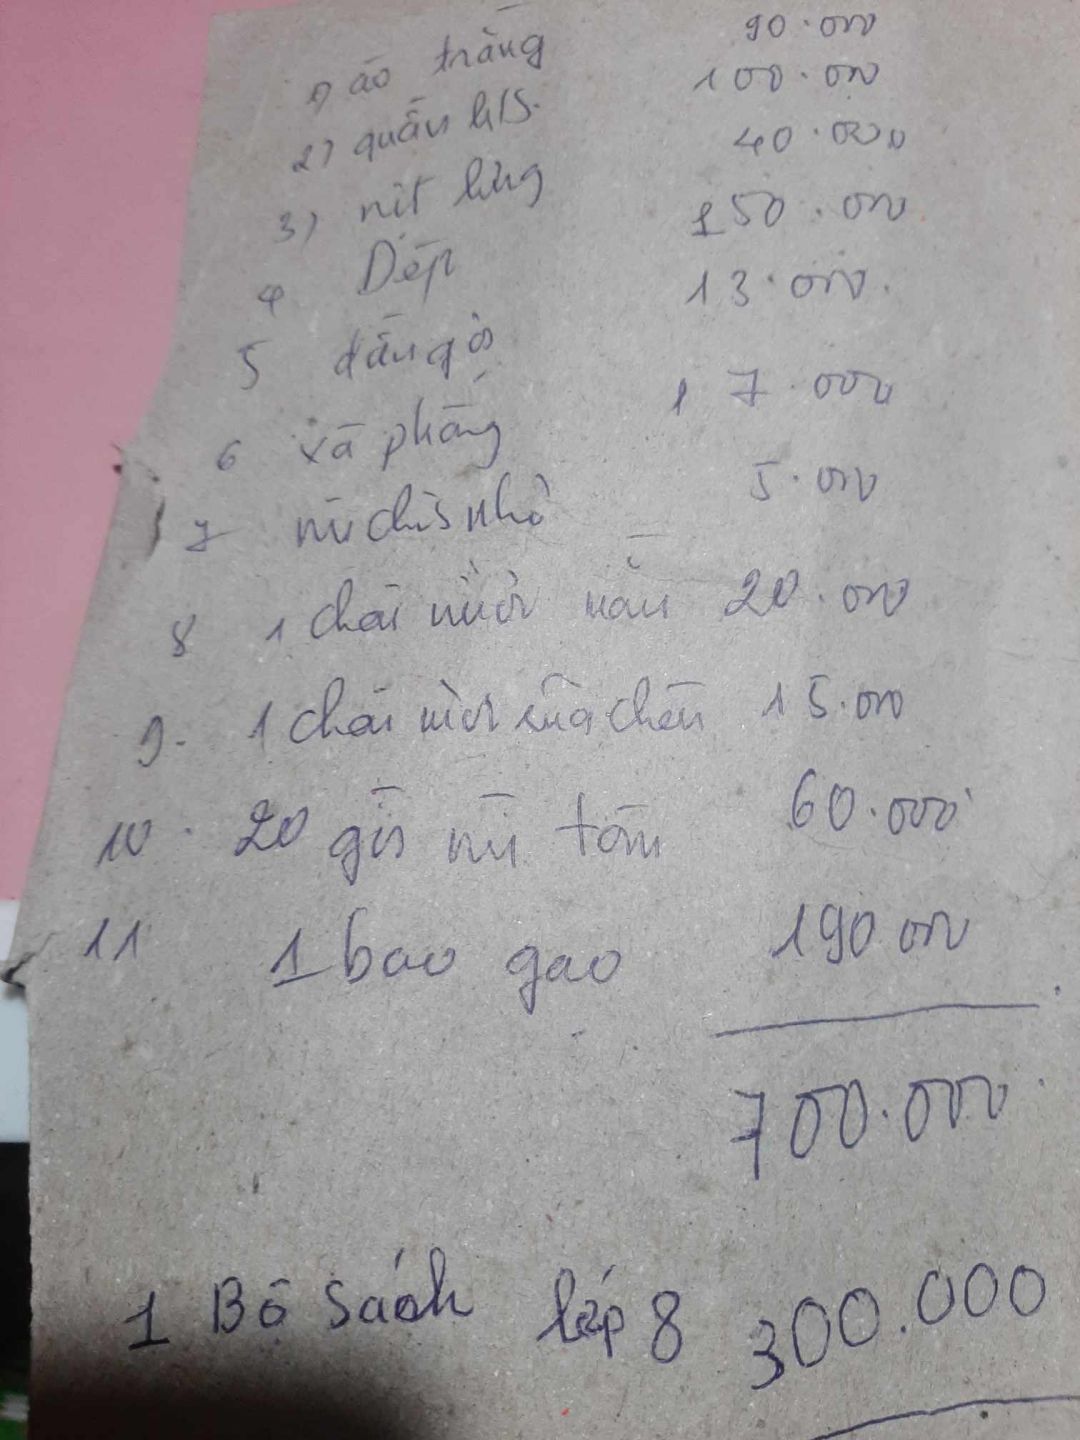 1) áo trắng 90.000
2) quần H/S. 100.000
3) nịt lưng 40.000
4 Dép 150.000
5 dầu gội 13.000.
6 xà phòng 17.000
7 mì chín nhỏ 5.000
8 1 chai nước mắn 20.000
9. 1 chai nước rửa chén 15.000
10. 20 gói mì tôm 60.000
11 1 bao gạo 190.000
700.000
1 Bộ Sách lớp 8 300.000